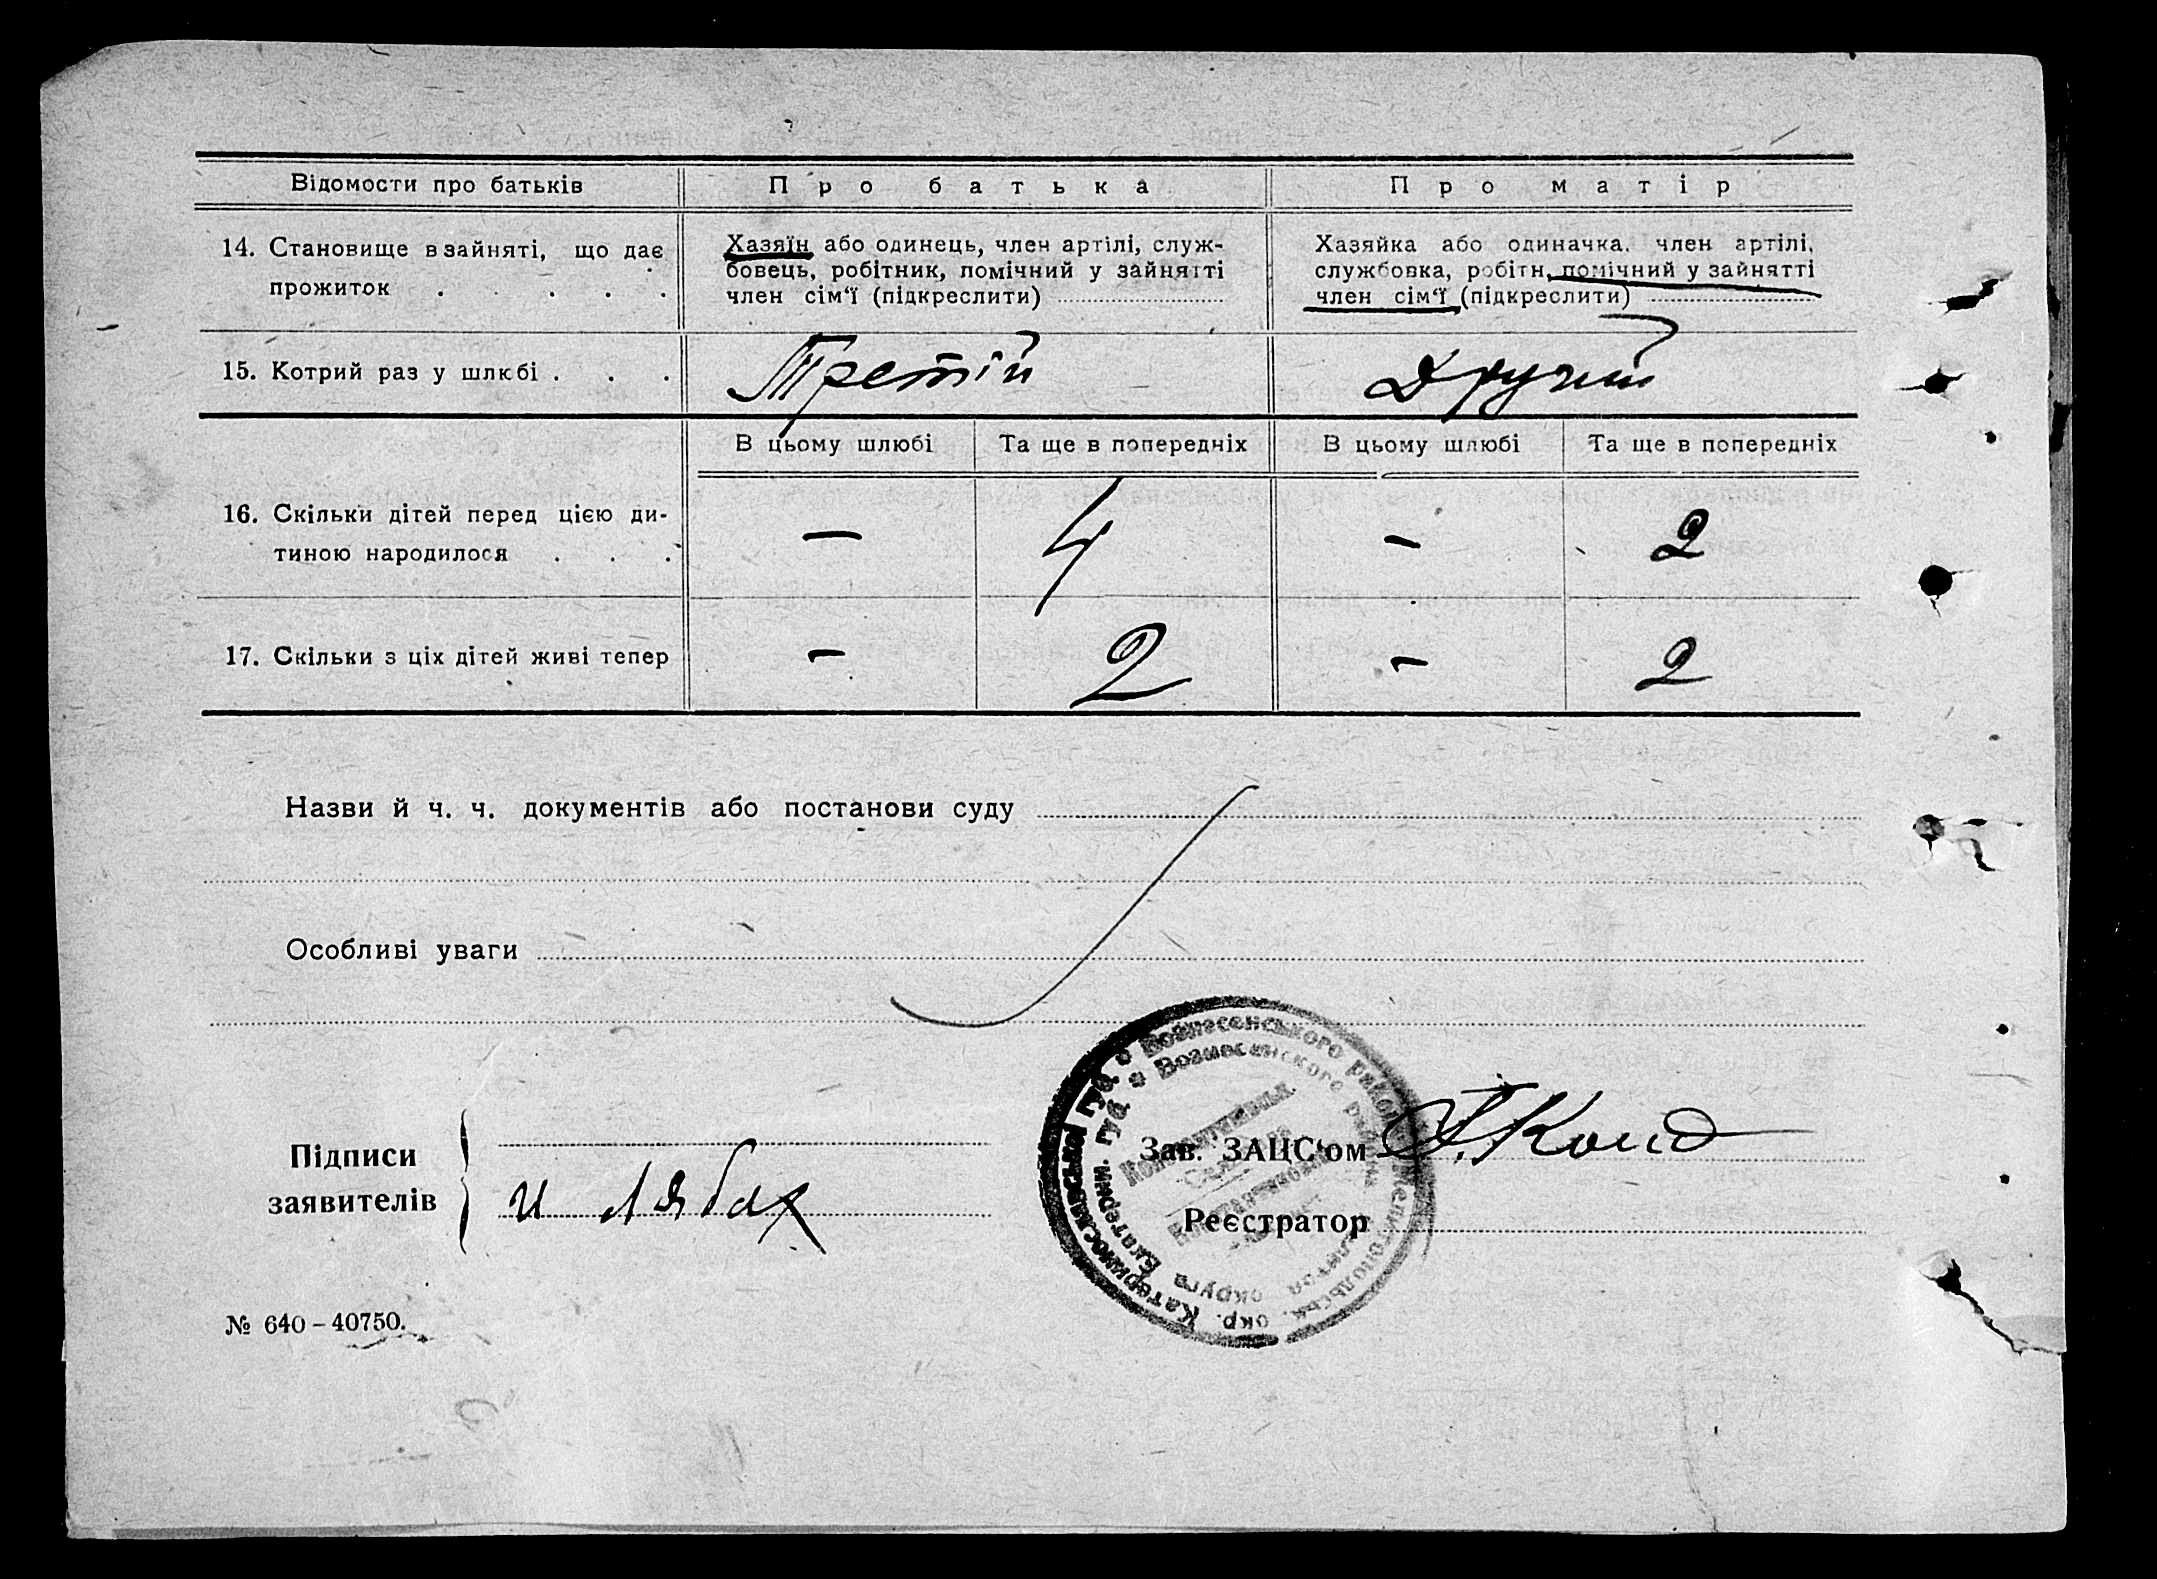 Відомости про батьків
Про батька
Про матір
14. Становище в зайняті, що дає
прожиток . . . . .
Хазяїн або одинець, член артілі, служ-
бовець, робітник, помічний у зайнятті
член сім'ї (підкреслити)
Хазяйка або одиначка, член артілі,
службовка, робітн, помічний у зайнятті
член сім'ї (підкреслити)
15. Котрий раз у шлюбі . . .
Третій
Другий
В цьому шлюбі
Та ще в попередніх
В цьому шлюбі
Та ще в попередніх
16. Скільки дітей перед цією ди-
тиною народилося . . .
— 4 — 2
17. Скільки з ціх дітей живі тепер
— 2 — 2
Назви й ч. ч. документів або постанови суду
Особливі уваги
Вознесенського району Мелитопольськ. окр. Катеринославської губ.
Вознесенского округа Екатерин. губ.
Підписи
заявителів
и Лябах
Зав. ЗАЦС'ом
Реєстратор
№ 640–40750.